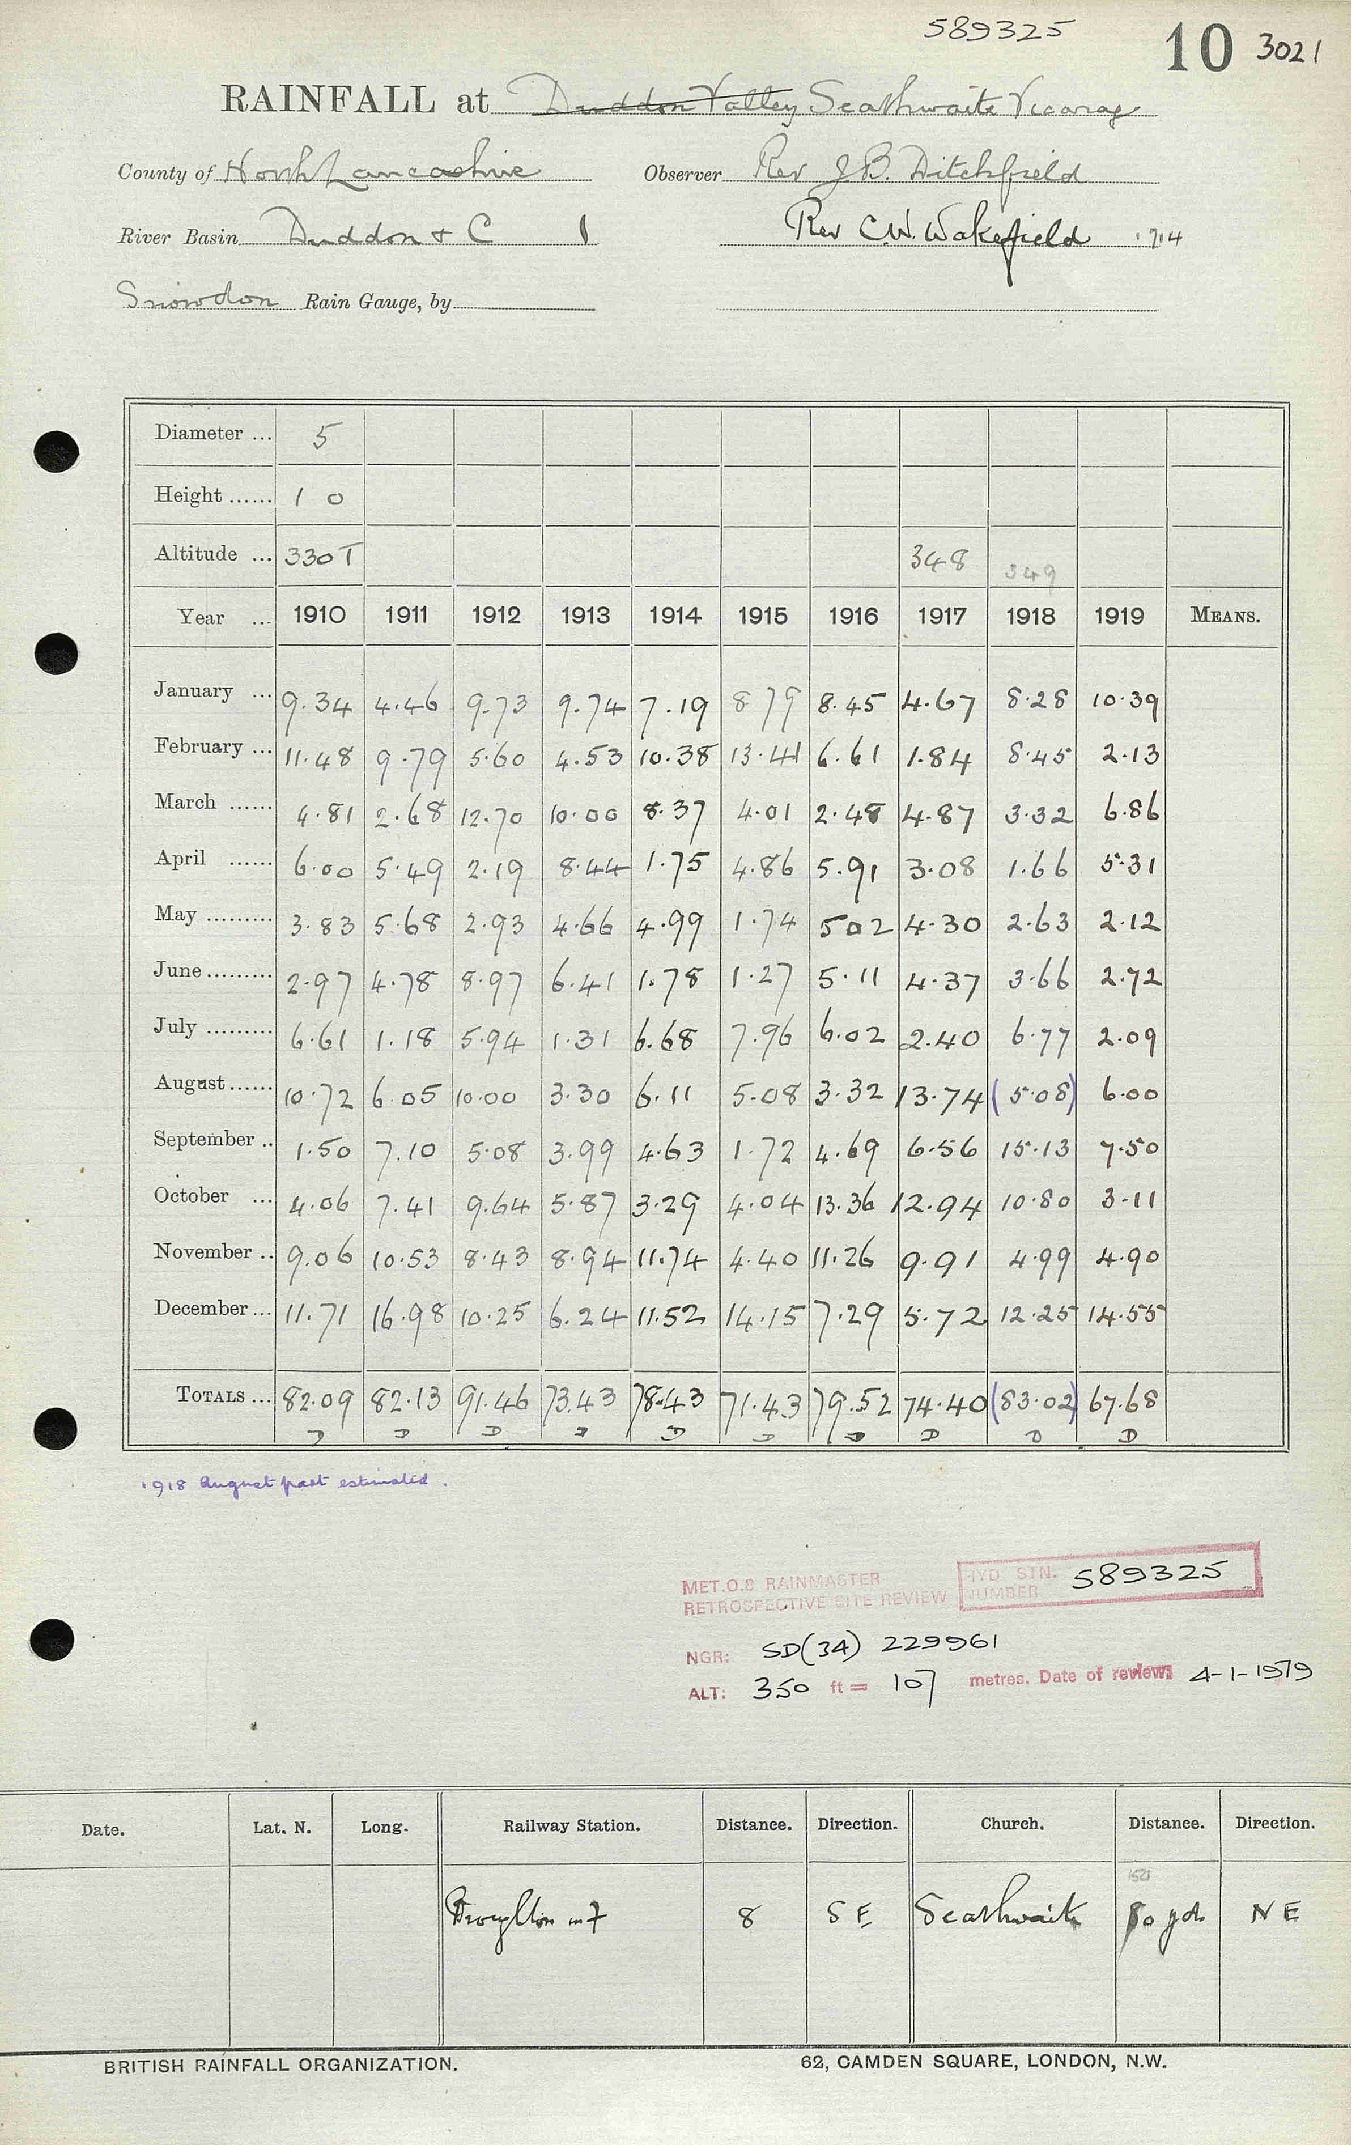 589325
10 3021
RAINFALL at Duddon Valley Seathwaite Vicarage
County of North Lancashire Observer Rev J B. Ditchfield
River Basin Duddon + C 1 Rev C.W. Wakefield 1914
Snowdon Rain Gauge, by
Diameter ... 5
Height ...... 1 0
Altitude ... 330 T 348 349
Year ... 1910 1911 1912 1913 1914 1915 1916 1917 1918 1919 MEANS.
January ... 9.34 4.46 9.73 9.74 7.19 8 79 8.45 4.67 8.28 10.39
February ... 11.48 9.79 5.60 4.53 10.38 13.41 6.61 1.84 8.45 2.13
March ...... 4.81 2.68 12.70 10.00 8.37 4.01 2.48 4.87 3.32 6.86
April ...... 6.00 5.49 2.19 8.44 1.75 4.86 5.91 3.08 1.66 5.31
May ......... 3.83 5.68 2.93 4.66 4.99 1.74 5 02 4.30 2.63 2.12
June ......... 2.97 4.78 8.97 6.41 1.78 1.27 5.11 4.37 3.66 2.72
July ......... 6.61 1.18 5.94 1.31 6.68 7.96 6.02 2.40 6.77 2.09
August ...... 10.72 6.05 10.00 3.30 6.11 5.08 3.32 13.74 (5.08) 6.00
September .. 1.50 7.10 5.08 3.99 4.63 1.72 4.69 6.56 15.13 7.50
October ... 4.06 7.41 9.64 5.87 3.29 4.04 13.36 12.94 10.80 3.11
November .. 9.06 10.53 8.43 8.94 11.74 4.40 11.26 9.91 4.99 4.90
December ... 11.71 16.98 10.25 6.24 11.52 14.15 7.29 5.72 12.25 14.55
TOTALS ... 82.09 82.13 91.46 73.43 78.43 71.43 79.52 74.40 (83.02) 67.68
D D D D D D D D D D
1918 August part estimated.
MET.O.8 RAINMASTER
RETROSPECTIVE SITE REVIEW
HYD STN. NUMBER 589325
NGR: SD(34) 229961
ALT: 350 ft = 107 metres. Date of review: 4-1-1979
Date. Lat. N. Long. Railway Station. Distance. Direction. Church. Distance. Direction.
Broughton in F 8 SE Seathwaite 80 yds NE
BRITISH RAINFALL ORGANIZATION. 62, CAMDEN SQUARE, LONDON, N.W.